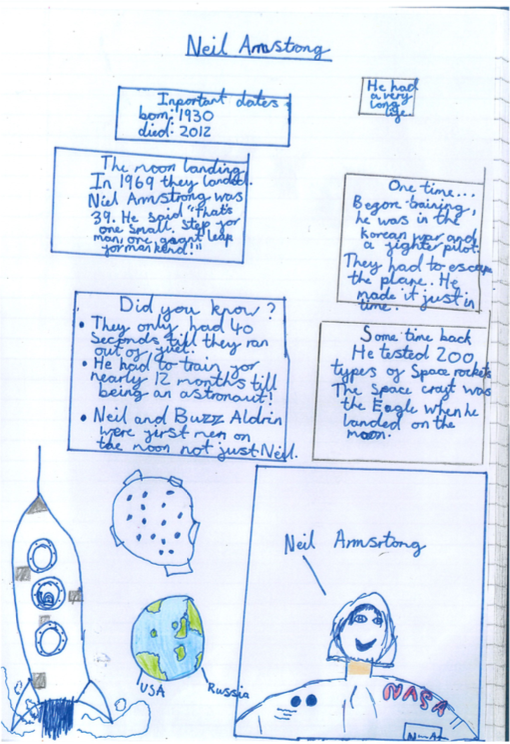 Neil Amstrong
Inportant dates
born: 1930
died: 2012
He had
a very
long
life
The moon landing
In 1969 they landed.
Niel Armstrong was
39. He said "That's
one small step for
man, one giant leap
for mankend!"
One time...
Begore tairing,
he was in the
Korean war and
a fighter pilot.
They had to escape
the plane. He
made it just in
time.
Did you know?
• They only had 40
Seconds till they ran
out of fuel.
• He had to train for
nearly 12 months till
being an astronaut!
• Neil and Buzz Aldrin
were first men on
the moon not just Neil.
Some time back
He tested 200
types of Space rockets
The Space craft was
the Eagle when he
landed on the
moon.
Neil Armsrtong
USA
Russia
NASA